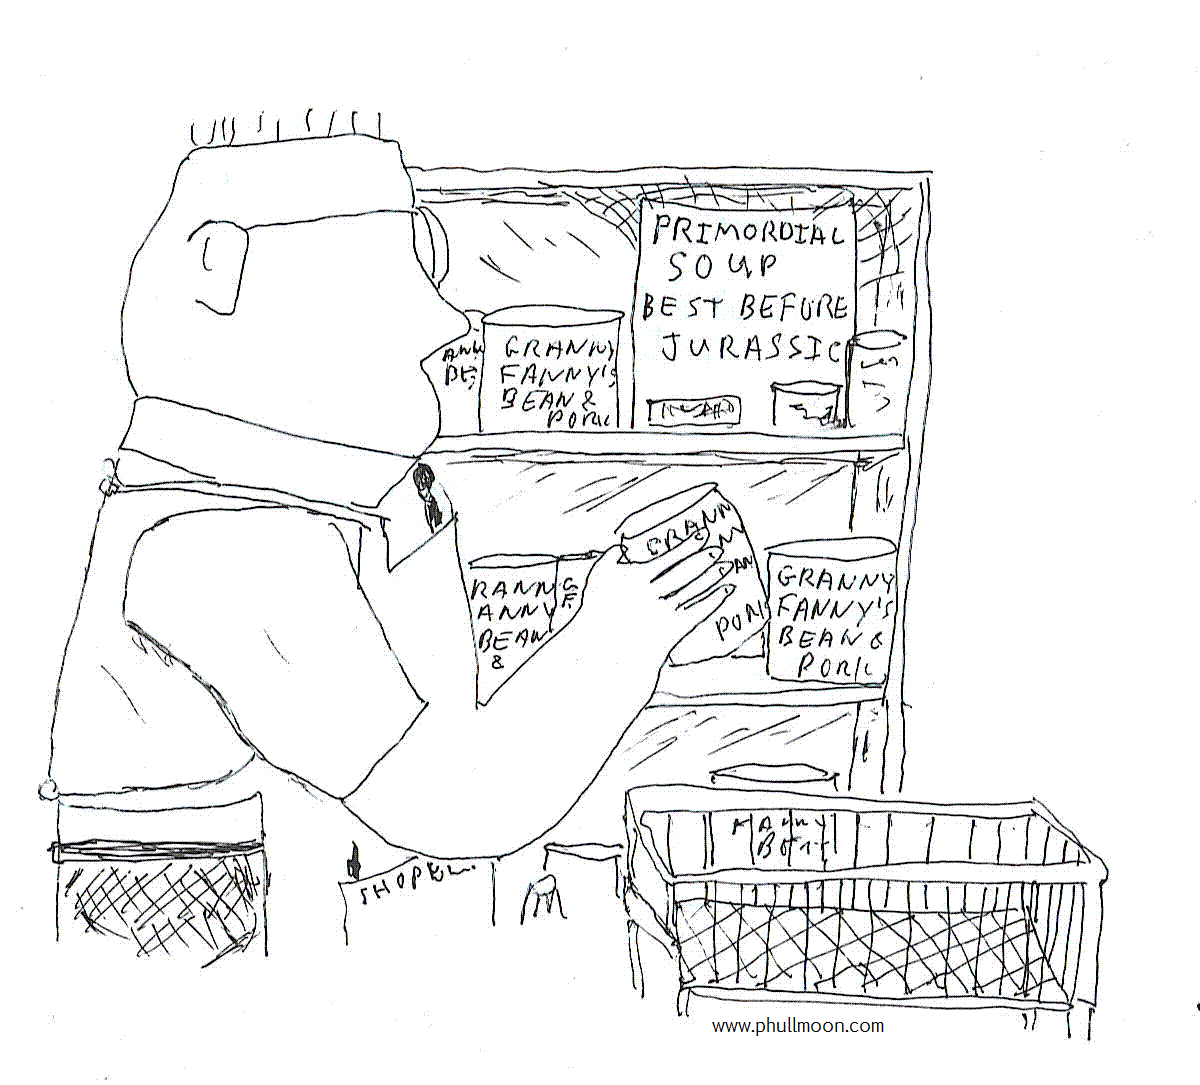 PRIMORDIAL
SOUP
BEST BEFORE
JURASSIC
GRANNY
FANNY'S
BEAN &
PORK
GRANN
PORK
RANN
ANNY
BEAN
&
GRANNY
FANNY'S
BEAN &
PORK
ANNY
www.phullmoon.com